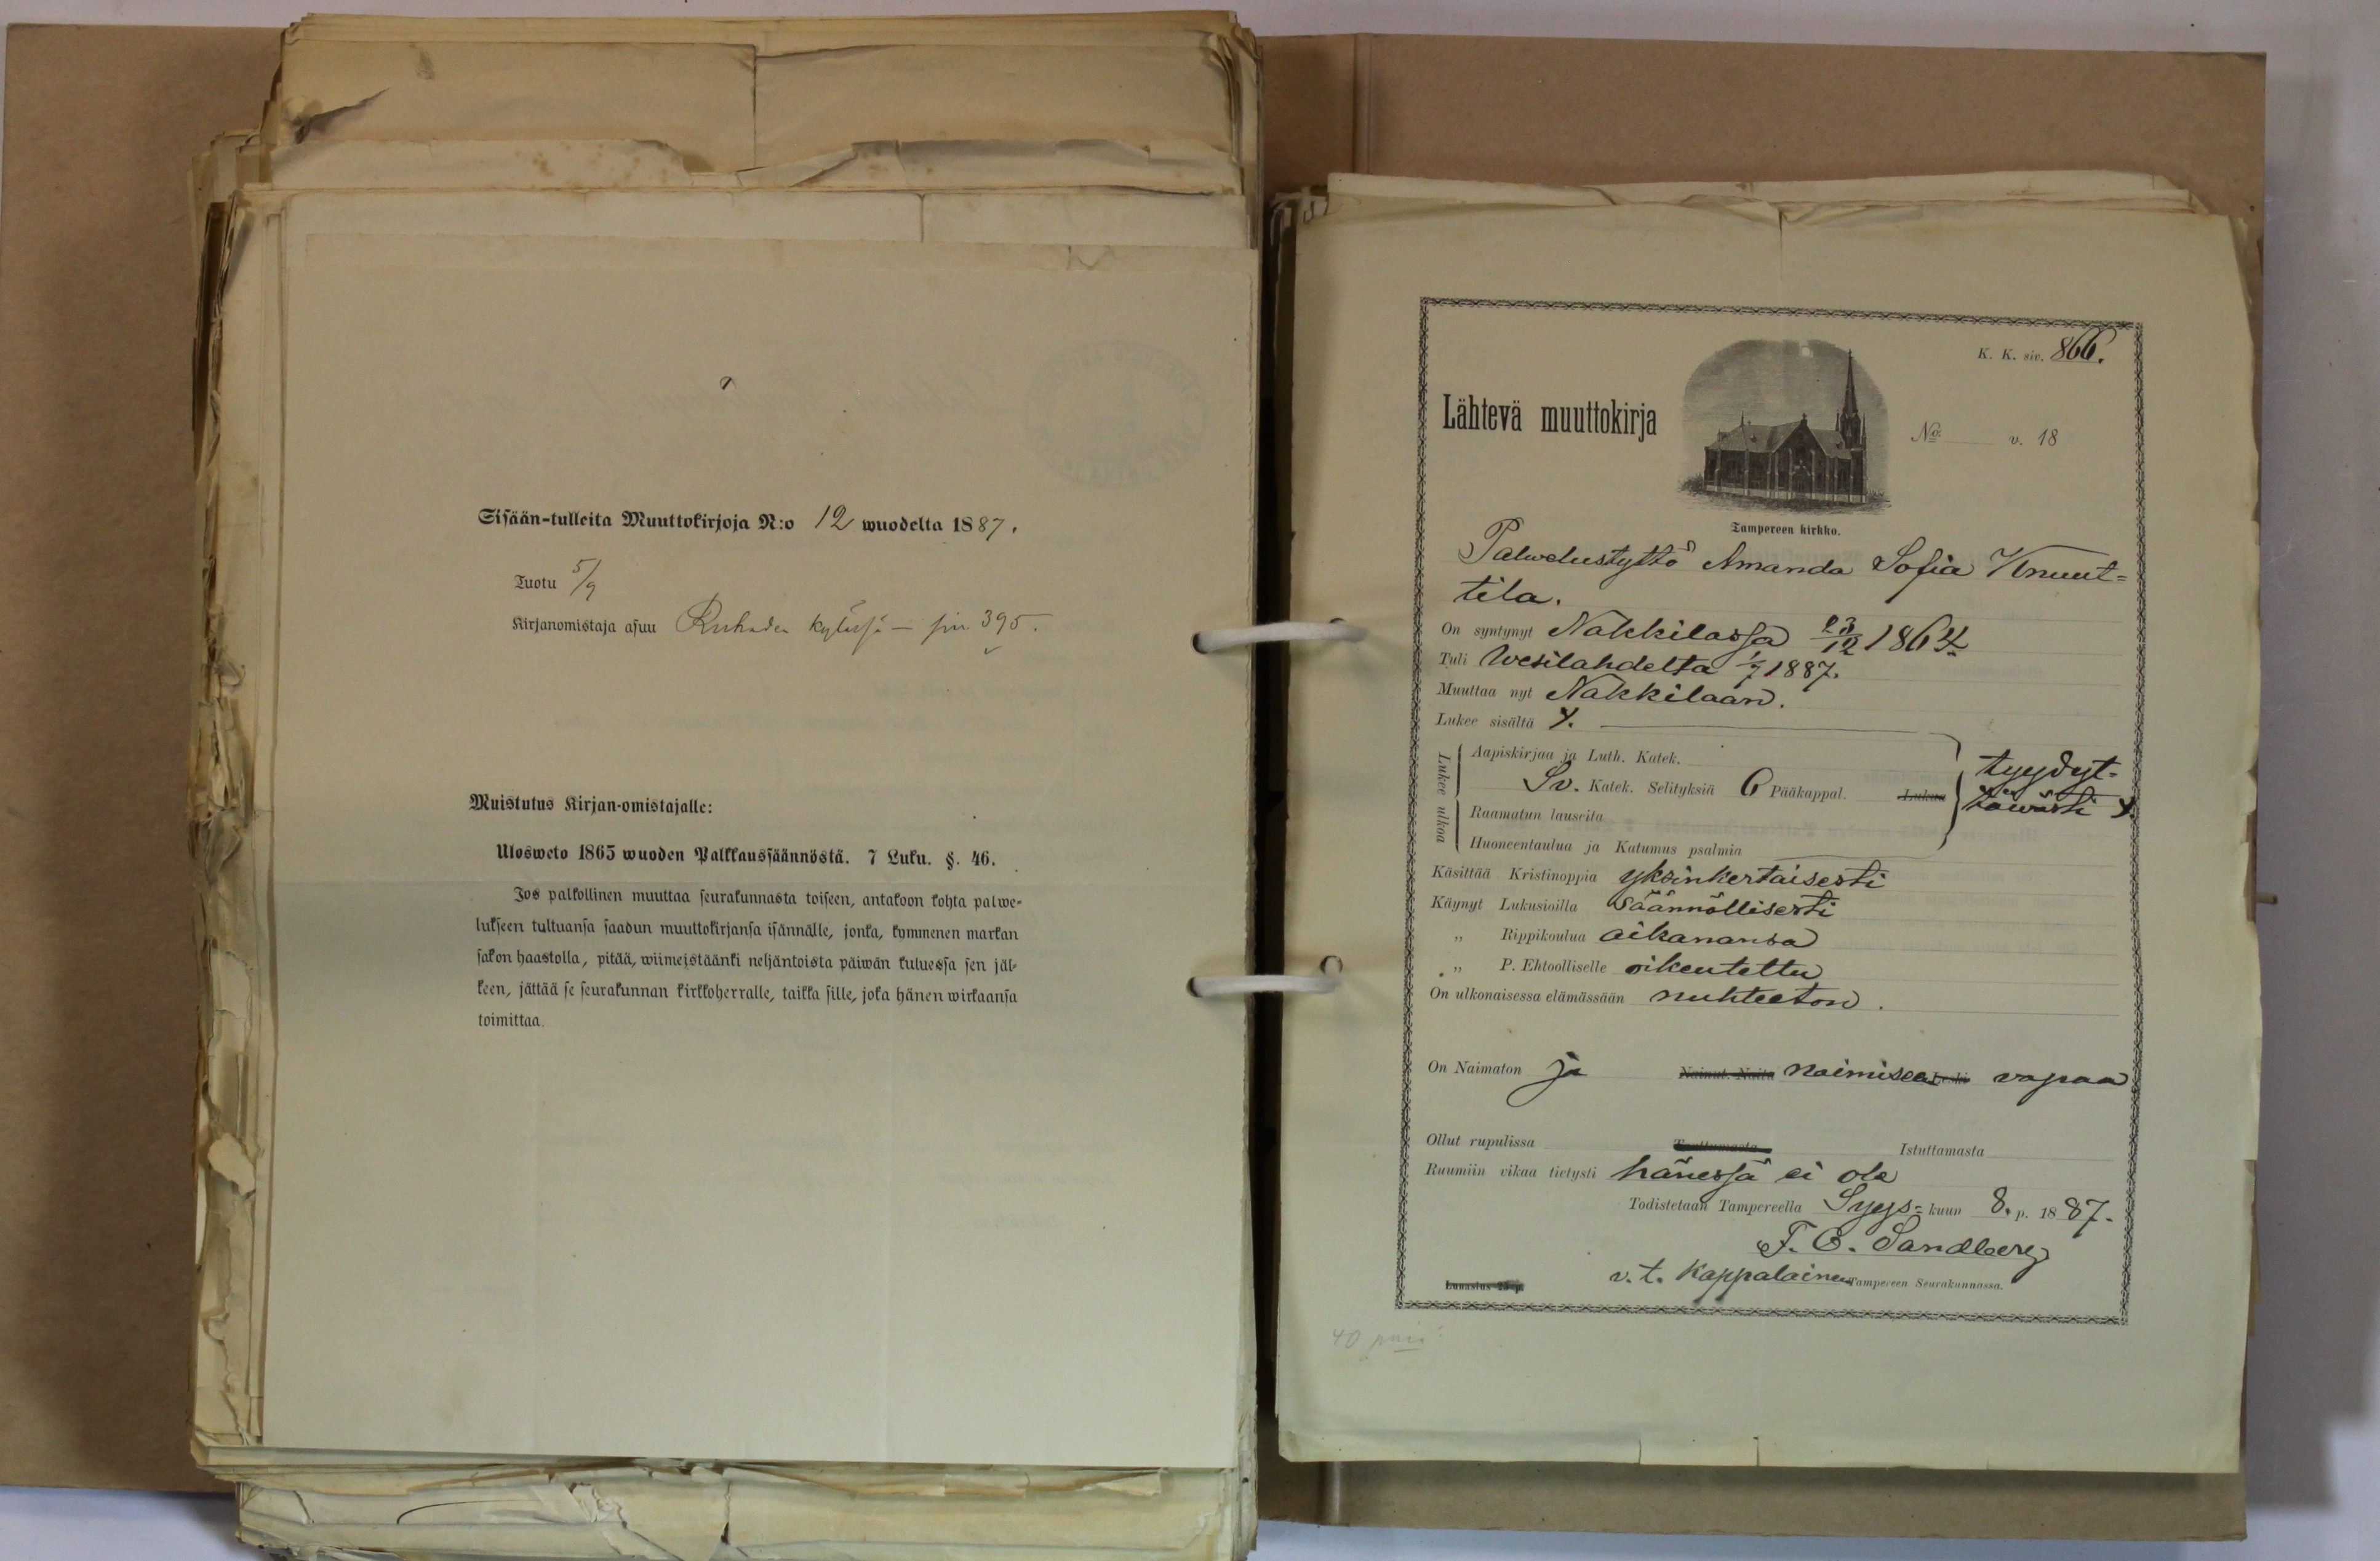 Sisään-tulleita Muuttokirjoja N:o 12 wuodelta 1887.
Tuotu 5/9
Kirjanomistaja asuu kylässä – siv 395.
Muistutus Kirjan-omistajalle:
Ulosweto 1865 wuoden Palkkaussäännöstä. 7 Luku. §. 46.
Jos palkollinen muuttaa seurakunnasta toiseen, antakoon kohta palwe-
lukseen tultuansa saadun muuttokirjansa isännälle, jonka, kymmenen markan
sakon haastolla, pitää, wiimeistäänki neljäntoista päiwän kuluessa sen jäl-
keen, jättää se seurakunnan kirkkoherralle, taikka sille, joka hänen wirkaansa
toimittaa.
K. K. siv. 866.
Lähtevä muuttokirja
No v. 18
Tampereen kirkko.
Palwelustyttö Amanda Sofia Knuut=
tila.
On syntynyt Nakkilassa 23/12 1864
Tuli Wesilahdelta 1/7 1887.
Muuttaa nyt Nakkilaan.
Lukee sisältä y.
Lukee ulkoa
Aapiskirjaa ja Luth. Katek.
Sv. Katek. Selityksiä 6 Pääkappal. Lukua
Raamatun lauseita
Huoneentaulua ja Katumus psalmia
tyydyt=
täwästi y.
Käsittää Kristinoppia yksinkertaisesti
Käynyt Lukusioilla säännöllisesti
„ Rippikoulua aikanansa
„ P. Ehtoolliselle oikeutettu
On ulkonaisessa elämässään nuhteeton.
On Naimaton ja Nainut. Naitu naimisea Leski vapaa
Ollut rupulissa Istuttamasta
Ruumiin vikaa tietysti hänessä ei ole
Todistetaan Tampereella Syys=kuun 8. p. 1887.
F. O. Sandberg
v. t. Kappalainen Tampereen Seurakunnassa.
Lunastus 25 p.
40 pni